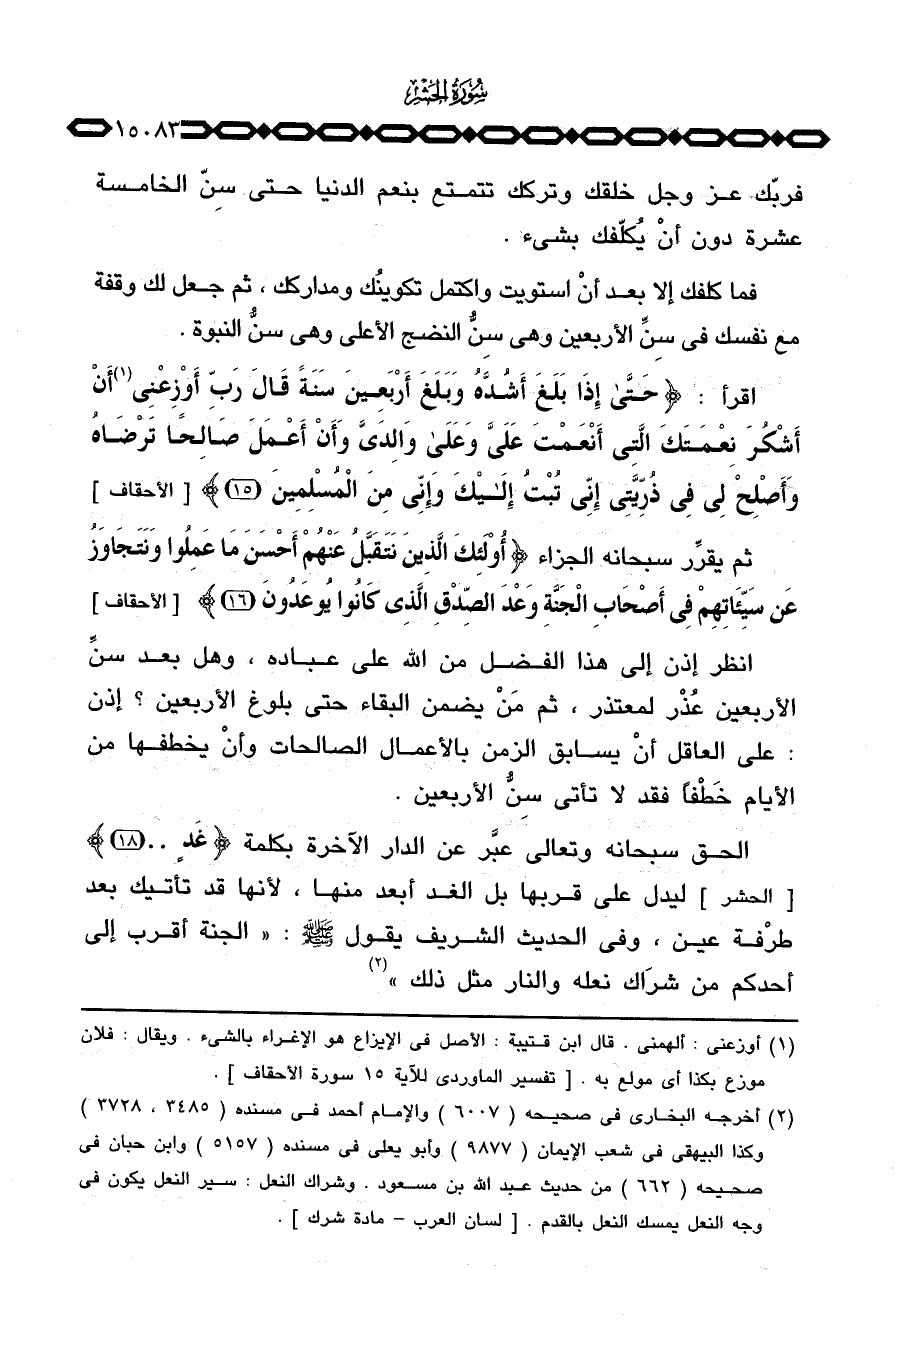 سُورَةُ الحَشْرِ
١٥٠٨٣
فربّك عـز وجل خلقك وتركك تتمتع بنعم الدنيا حـتى سنّ الخامـسة
عشرة دون أنْ يُكلّفك بشىء .
فما كلفك إلا بعـد أنْ استويت واكتمل تكوينُك ومداركك ، ثم جـعل لك وقفة
مع نفسك فى سنِّ الأربعين وهى سنُّ النضج الأعلى وهى سنُّ النبوة .
اقرأ : ﴿ حَتَّىٰ إِذَا بَلَغَ أَشُدَّهُ وَبَلَغَ أَرْبَعِينَ سَنَةً قَالَ رَبِّ أَوْزِعْنِى(١) أَنْ
أَشْكُرَ نِعْمَتَكَ الَّتِى أَنْعَمْتَ عَلَىَّ وَعَلَىٰ وَالِدَىَّ وَأَنْ أَعْمَلَ صَالِحًا تَرْضَاهُ
وَأَصْلِحْ لِى فِى ذُرِّيَّتِى إِنِّى تُبْتُ إِلَيْكَ وَإِنِّى مِنَ الْمُسْلِمِينَ (١٥) ﴾ [ الأحقاف ]
ثم يقرِّر سبحانه الجزاء ﴿ أُولَٰئِكَ الَّذِينَ نَتَقَبَّلُ عَنْهُمْ أَحْسَنَ مَا عَمِلُوا وَنَتَجَاوَزُ
عَن سَيِّئَاتِهِمْ فِى أَصْحَابِ الْجَنَّةِ وَعْدَ الصِّدْقِ الَّذِى كَانُوا يُوعَدُونَ (١٦) ﴾ [ الأحقاف ]
انظر إذن إلى هذا الفـضـل من الله على عـبـاده ، وهل بعـد سنِّ
الأربعين عُذْر لمعتذر ، ثم مَنْ يضمن البقاء حتى بلوغ الأربعين ؟ إذن
: على العاقل أنْ يسـابق الزمن بالأعمال الصالحات وأنْ يخطفـها من
الأيام خَطْفاً فقد لا تأتى سنُّ الأربعين .
الحـق سبحانه وتعالى عبَّر عن الدار الآخرة بكلمة ﴿ غَدٍ .. (١٨) ﴾
[ الحشر ] ليدل على قـربها بل الغـد أبعد منهـا ، لأنها قد تأتيك بعد
طرْفـة عيـن ، وفى الحديث الشريف يقـول ﷺ : « الجنة أقرب إلى
أحدكم من شرَاك نعله والنار مثل ذلك »(٢)
(١) أوزعنى : ألهمنى . قال ابن قـتيبة : الأصل فى الإيزاع هو الإغراء بالشىء . ويقال : فلان
موزع بكذا أى مولع به . [ تفسير الماوردى للآية ١٥ سورة الأحقاف ] .
(٢) أخرجه البخارى فى صحيحه ( ٦٠٠٧ ) والإمام أحمد فـى مسنده ( ٣٤٨٥ ، ٣٧٢٨ )
وكذا البيهقى فى شعب الإيمان ( ٩٨٧٧ ) وأبو يعلى فى مسنده ( ٥١٥٧ ) وابن حبان فى
صحـيحه ( ٦٦٢ ) من حديث عبـد الله بن مسـعود . وشراك النعل : سـير النعل يكون فى
وجه النعل يمسك النعل بالقدم . [ لسان العرب – مادة شرك ] .